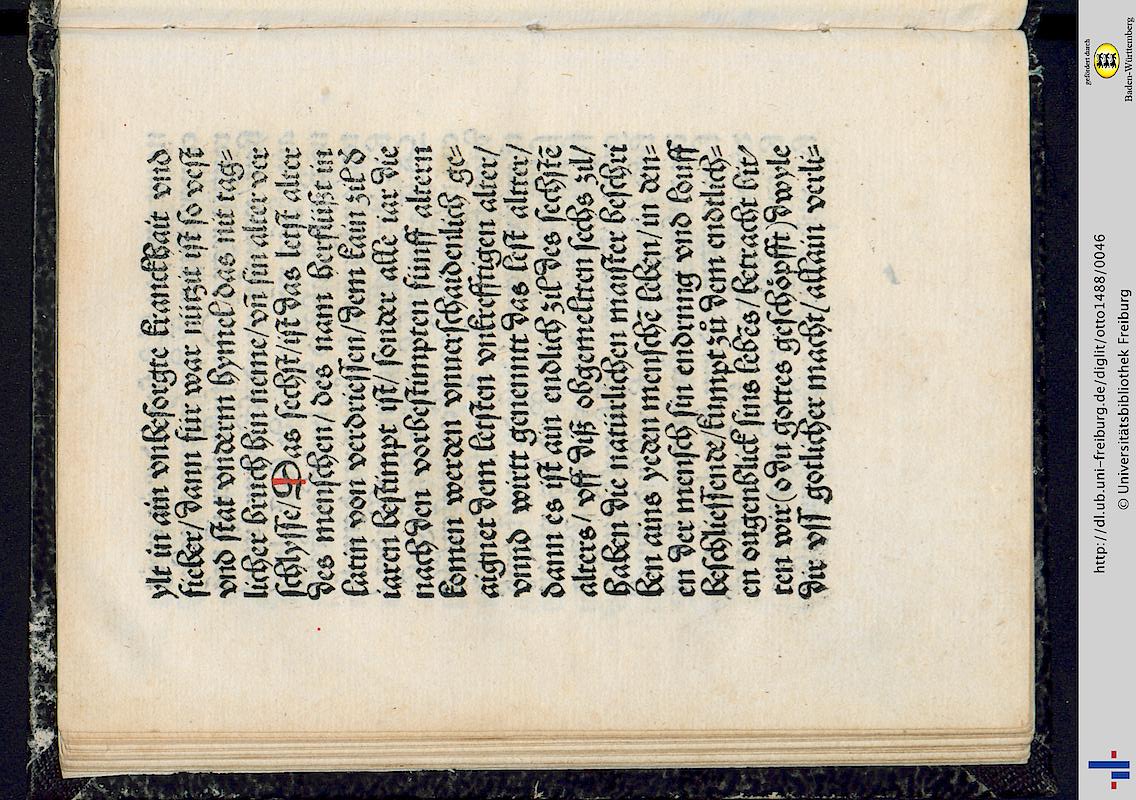 ylt in ain vnbesorgte kranckhait vnd
fieber/dann für war nützit ist so vest
vnd stat vnderm hymel/das nit tag=
licher bruch hin neme/vn̄ sin alter ver
schlysse/Das sechst/ist das letst alter
des menschen/des nam herflüßt in
latin von verdriessen/dem kain zil d
iaren bestimpt ist/sonder alle iar die
nach den vorbestimpten fünff altern
komen werden vnuerschaidenlich ge=
aignet dem letsten vnkrefftigen alter/
vnnd wirtt genenntt das lest altter/
dann es ist ain endlich zil des sechstē
alters/vff diß obgemelten sechs zil/
haben die natürlichen maister beschri
ben ains yeden menschē leben/in den=
en der mensch sin endrung vnd louff
beschliessende/kumpt zů dem endtlich=
en ougenblick sins lebēs/betracht bit/
ten wir(o du gottes geschöpfft)dwyle
dir vss gotlicher macht/allain verli=
gefördert durch
Baden-Württemberg
http://dl.ub.uni-freiburg.de/diglit/otto1488/0046
© Universitätsbibliothek Freiburg